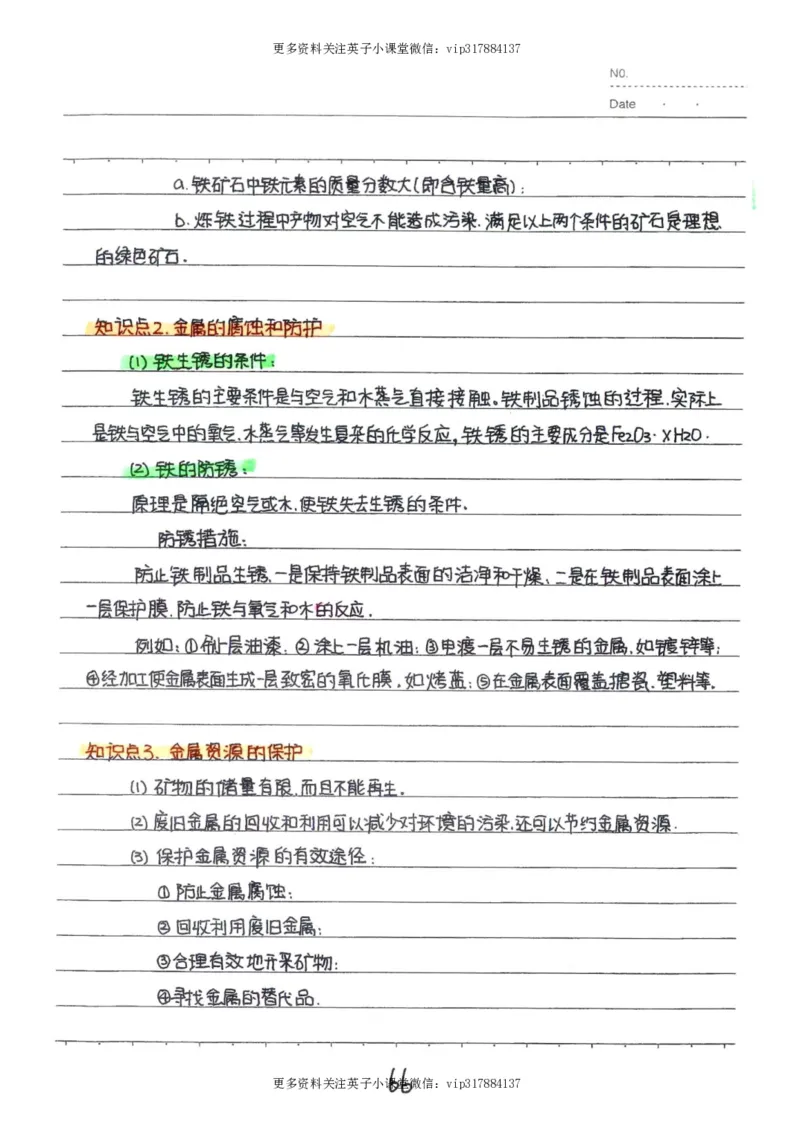 更多资料关注英子小课堂微信：vip317884137
NO.
Date
a.铁矿石中铁元素的质量分数大(即含铁量高)；
b.炼铁过程中产物对空气不能造成污染.满足以上两个条件的矿石是理想
的绿色矿石.
知识点2.金属的腐蚀和防护
(1)铁生锈的条件：
铁生锈的主要条件是与空气和水蒸气直接接触。铁制品锈蚀的过程.实际上
是铁与空气中的氧气.水蒸气等发生复杂的化学反应，铁锈的主要成分是Fe2O3·XH2O.
(2)铁的防锈：
原理是隔绝空气或水.使铁失去生锈的条件.
防锈措施：
防止铁制品生锈.一是保持铁制品表面的洁净和干燥、二是在铁制品表面涂上
一层保护膜.防止铁与氧气和水的反应.
例如：①刷上层油漆.②涂上一层机油；③电渡一层不易生锈的金属.如镀锌等；
④经加工使金属表面生成一层致密的氧化膜.如烤蓝；⑤在金属表面覆盖搪瓷.塑料等.
知识点3.金属资源的保护
(1)矿物的储量有限.而且不能再生.
(2)废旧金属的回收和利用可以减少对环境的污染.还可以节约金属资源.
(3)保护金属资源的有效途径：
①防止金属腐蚀；
②回收利用废旧金属；
③合理有效地开采矿物；
④寻找金属的替代品.
66
更多资料关注英子小课堂微信：vip317884137